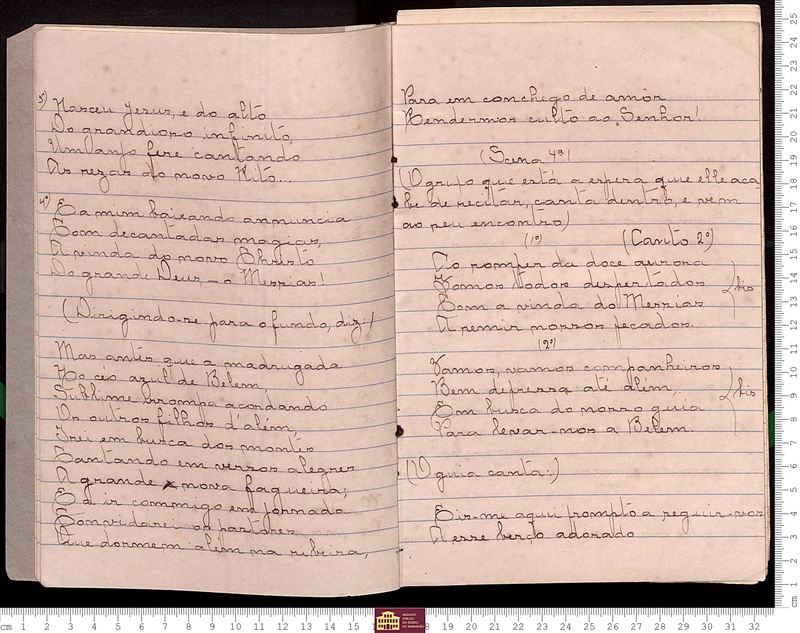 3º) Nasceu Jesus, e do alto
Do grandioso infinito,
Um anjo fere cantando
As rezas do novo Rito...
4º) E a mim baixando annuncia
Com decantadas magias,
A vinda do novo Christo
Do grande Deus, – o Messias!
(Dirigindo-se para o fundo, diz:)
Mas antes que a madrugada
No céo azul de Belem,
Sublime irrompa acordando
Os outros filhos d'além,
Irei em busca dos montes
Cantando em versos alegres
A grande nova fagueira;
E a ir commigo em jornada
Convidarei os pastores
Que dormem além na ribeira,
Para em conchego de amôr
Rendermos culto ao Senhor!
(Scena 4ª)
(O grupo que está a espera que elle aca-
be de recitar, canta dentro, e vem
ao seu encontro)
(1º) (Canto 2º)
Ao romper da doce aurora
Fomos todos despertados
Com a vinda do Messias
A remir nossos pecados.
bis
(2º)
Vamos, vamos companheiros
Bem depressa até além,
Em busca do nosso guia
Para levar-nos a Belem.
bis
(O guia canta:)
Eis-me aqui prompto a seguir-vos
A esse berço adorado